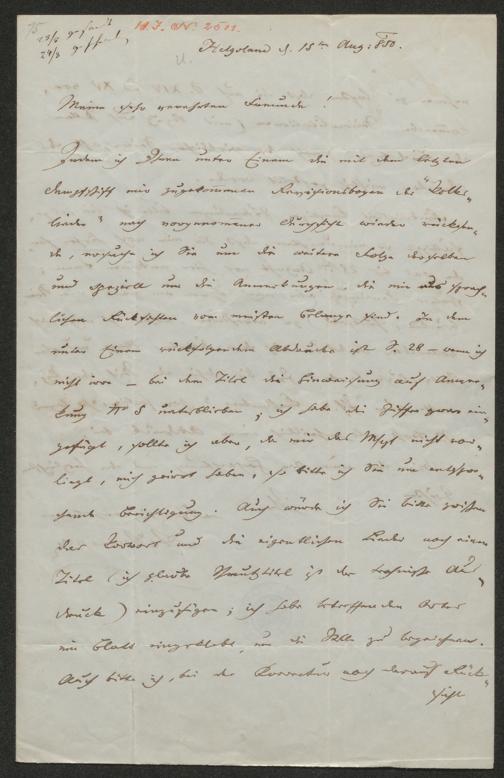 75
23/8
24/8
H. I. N. 2501.
Helgoland d. 15ten Aug: 850.
Meine sehr verehrten Freunde!
Indem ich Ihnen unter Einem die mit dem letzten
Dampfschiff mir zugekommenen Revisionsbogen der "Volks-
lieder" nach vorgenommener Durchsicht wieder rücksen-
de, ersuche ich Sie um die weitere Folge derselben
und speziell um die Anmerkungen, die mir aus sprach-
lichen Rücksichten vom meisten Belange sind. In dem
unter Einem rückfolgenden Abdrucke ist S. 28 – wenn ich
nicht irre – bei dem Titel die Hinweisung auf Anmer-
kung No 5 unterblieben; ich habe die Ziffer zwar ein-
gefügt, sollte ich aber, da mir das Mspt nicht vor-
liegt, mich geirrt haben, so bitte ich Sie um entspre-
chende Berichtigung. Auch würde ich Sie bitten zwischen
das Vorwort und die eigentlichen Lieder noch einen
Titel (ich glaube Schmutztitel ist der technische Aus-
druck) einzufügen; ich habe betreffenden Ortes
ein Blatt eingeklebt, um die Stelle zu bezeichnen.
Auch bitte ich, bei der Korrektur noch darauf Rück-
sicht